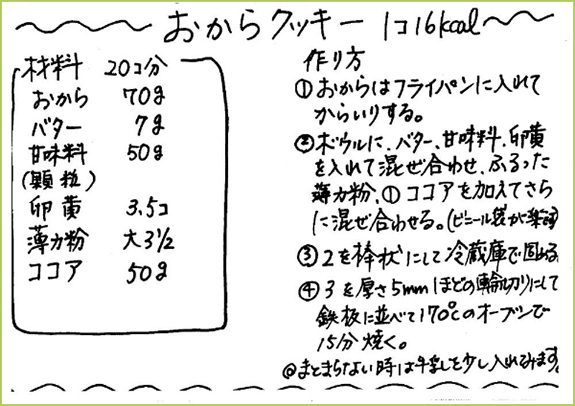 おからクッキー 1コ16kcal
材料 20コ分
おから 70g
バター 7g
甘味料 50g
(顆粒)
卵黄 3.5コ
薄力粉 大3½
ココア 50g
作り方
①おからはフライパンに入れて
からいりする。
②ボウルに、バター、甘味料、卵黄
を入れて混ぜ合わせ、ふるった
薄力粉、①ココアを加えてさら
に混ぜ合わせる。(ビニール袋が楽
③2を棒状にして冷蔵庫で固める
④3を厚さ5mmほどの輪切りにして
鉄板に並べて170℃のオーブンで
15分焼く。
@まとまらない時は牛乳を少し入れてみます。